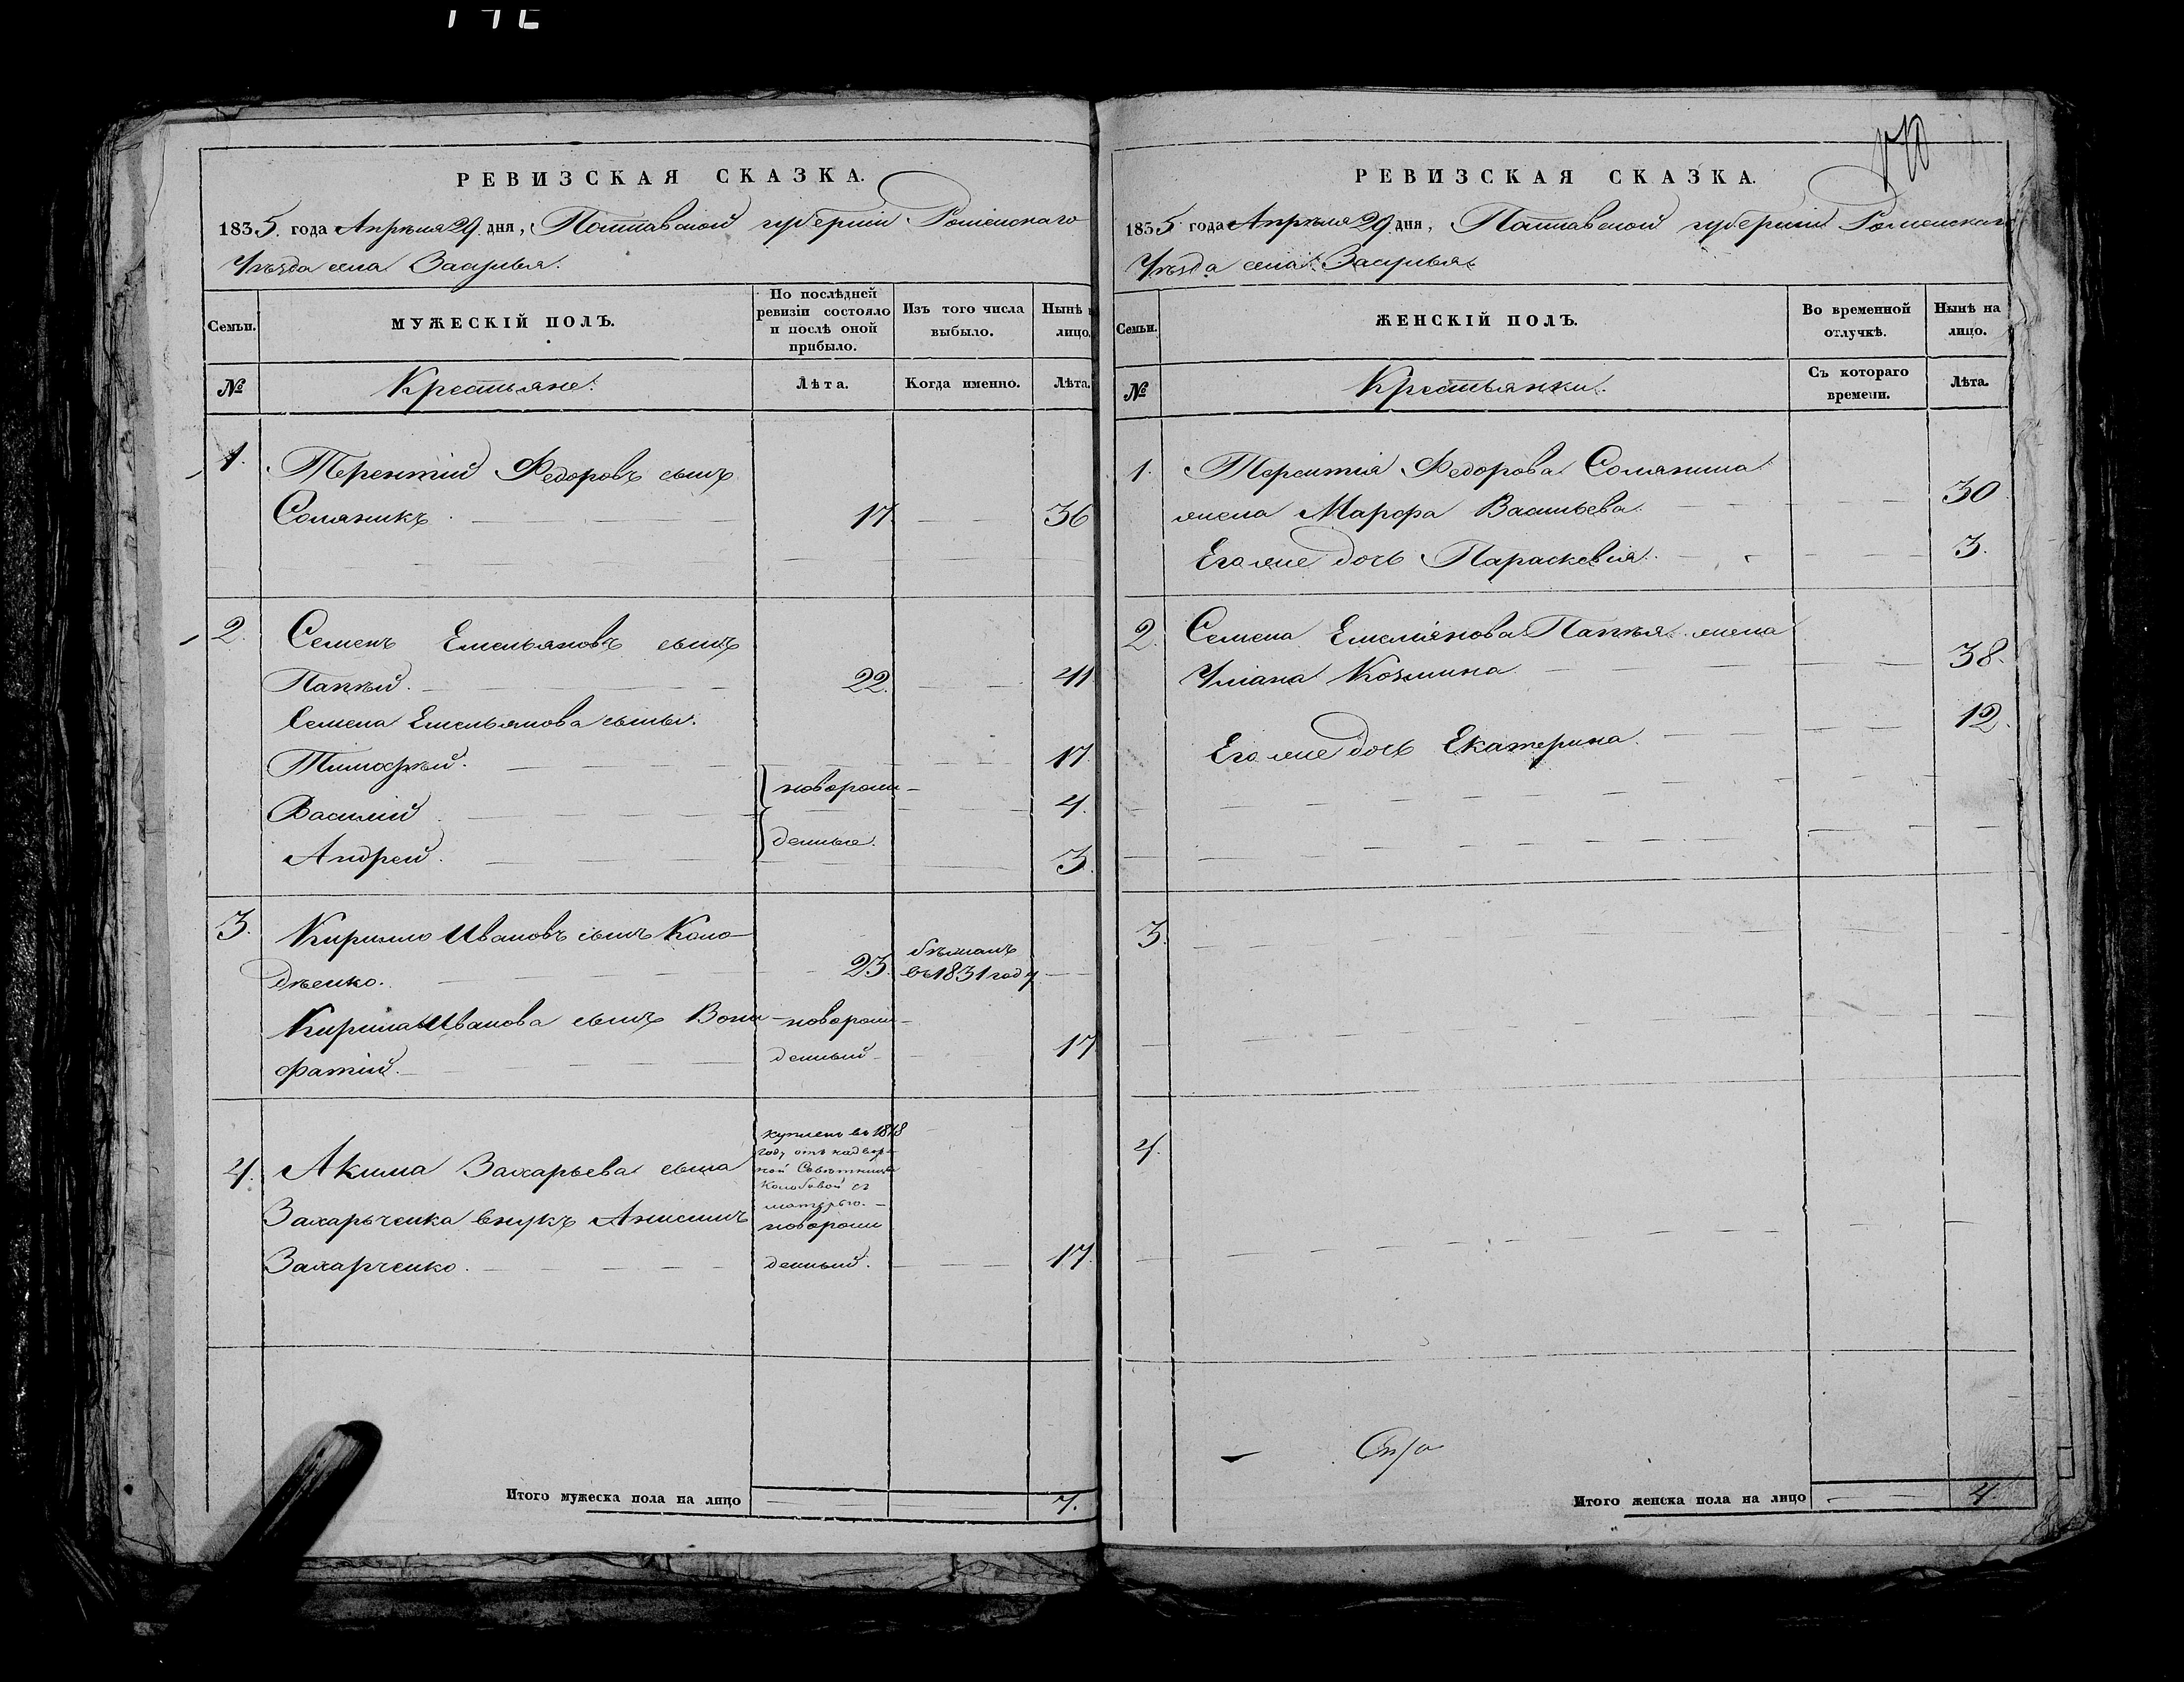 РЕВИЗСКАЯ СКАЗКА.
1835 года Апрѣля 29 дня, Полтавской губерніи Роменскаго
Уѣзда села Засулья.
Семьи.
МУЖЕСКІЙ ПОЛЪ.
По послѣдней
ревизіи состояло
и послѣ оной
прибыло.
Изъ того числа
выбыло.
Нынѣ
лицо.
№
Крестьяне.
Лѣта.
Когда именно.
Лѣта.
1. Терентій Федоровъ сынъ
Соляникъ 17 36
2. Семенъ Емельяновъ сынъ
Папкѣй. 22 41
Семена Емельянова сыны.
Тимофѣй. 17
новорож-
Василій 4.
денные.
Андрей. 3
3. Кирилло Ивановъ сынъ Коло-
бѣжалъ
дѣенко. 23. въ 1831 году
Кирила Иванова сынъ Вони- новорож-
фатій. денный 17
купленъ въ 1818
году отъ надвор-
4. Акима Захарьева сына ной Совѣтницы
Колобовой съ
матерью.
Захарьченка внукъ Анисимъ новорож
Захарченко. денный. 17
Итого мужеска пола на лицо 7.
РЕВИЗСКАЯ СКАЗКА.
1835 года Апрѣля 29 дня, Полтавской губерніи Роменскаго
Уѣзда села Засулья
Семьи.
ЖЕНСКІЙ ПОЛЪ.
Во временной
отлучкѣ.
Нынѣ на
лицо.
№
Крестьянки.
Съ котораго
времени.
Лѣта.
1. Терентія Федорова Соляника
жена Марфа Васильева. 30
Его же дочь Параскевія. 3.
2. Семена Емеліянова Папкѣя жена
Уліана Козмина 38.
Его же дочь Екатерина. 12.
3.
4.
Итого женска пола на лицо 4.